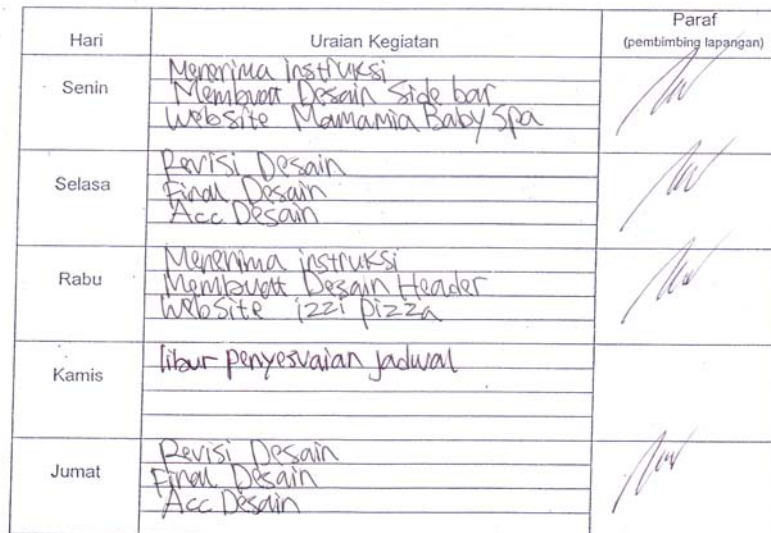 Hari Uraian Kegiatan Paraf
(pembimbing lapangan)
Senin
Menerima instruksi
Membuat Desain Side bar
Website Mamamia Baby Spa
Selasa
Revisi Desain
Final Desain
Acc Desain
Rabu
Menerima instruksi
Membuat Desain Header
Website izzi pizza
Kamis
libur penyesuaian jadwal
Jumat
Revisi Desain
Final Desain
Acc Desain